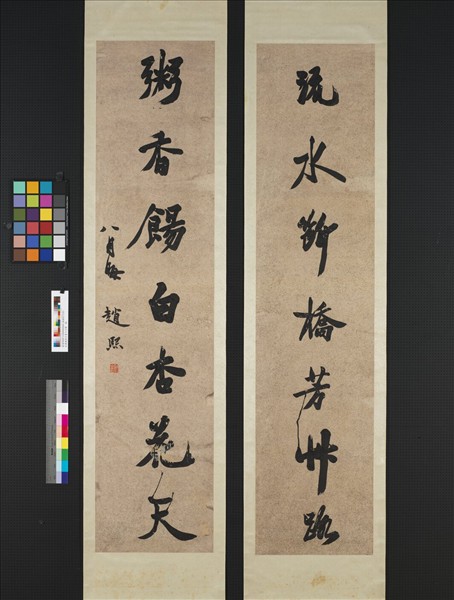 疏水斷橋芳艸路
粥香餳白杏花天
八月
趙熙